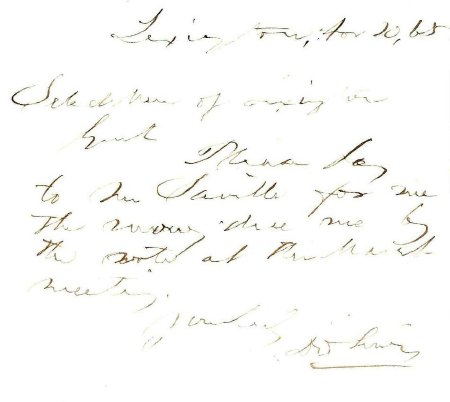 Lexington, 20, 65
Selectmen of Lexington
Gent
Please pay
to Mr Saville for me
the money due me by
the vote at the March
meeting.
Yours truly